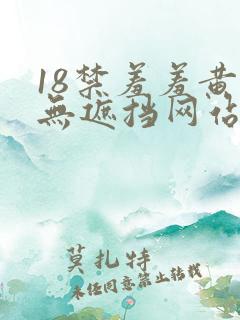 18禁羞羞黄
無遮挡网佔
莫扎特
未经同意禁止转载